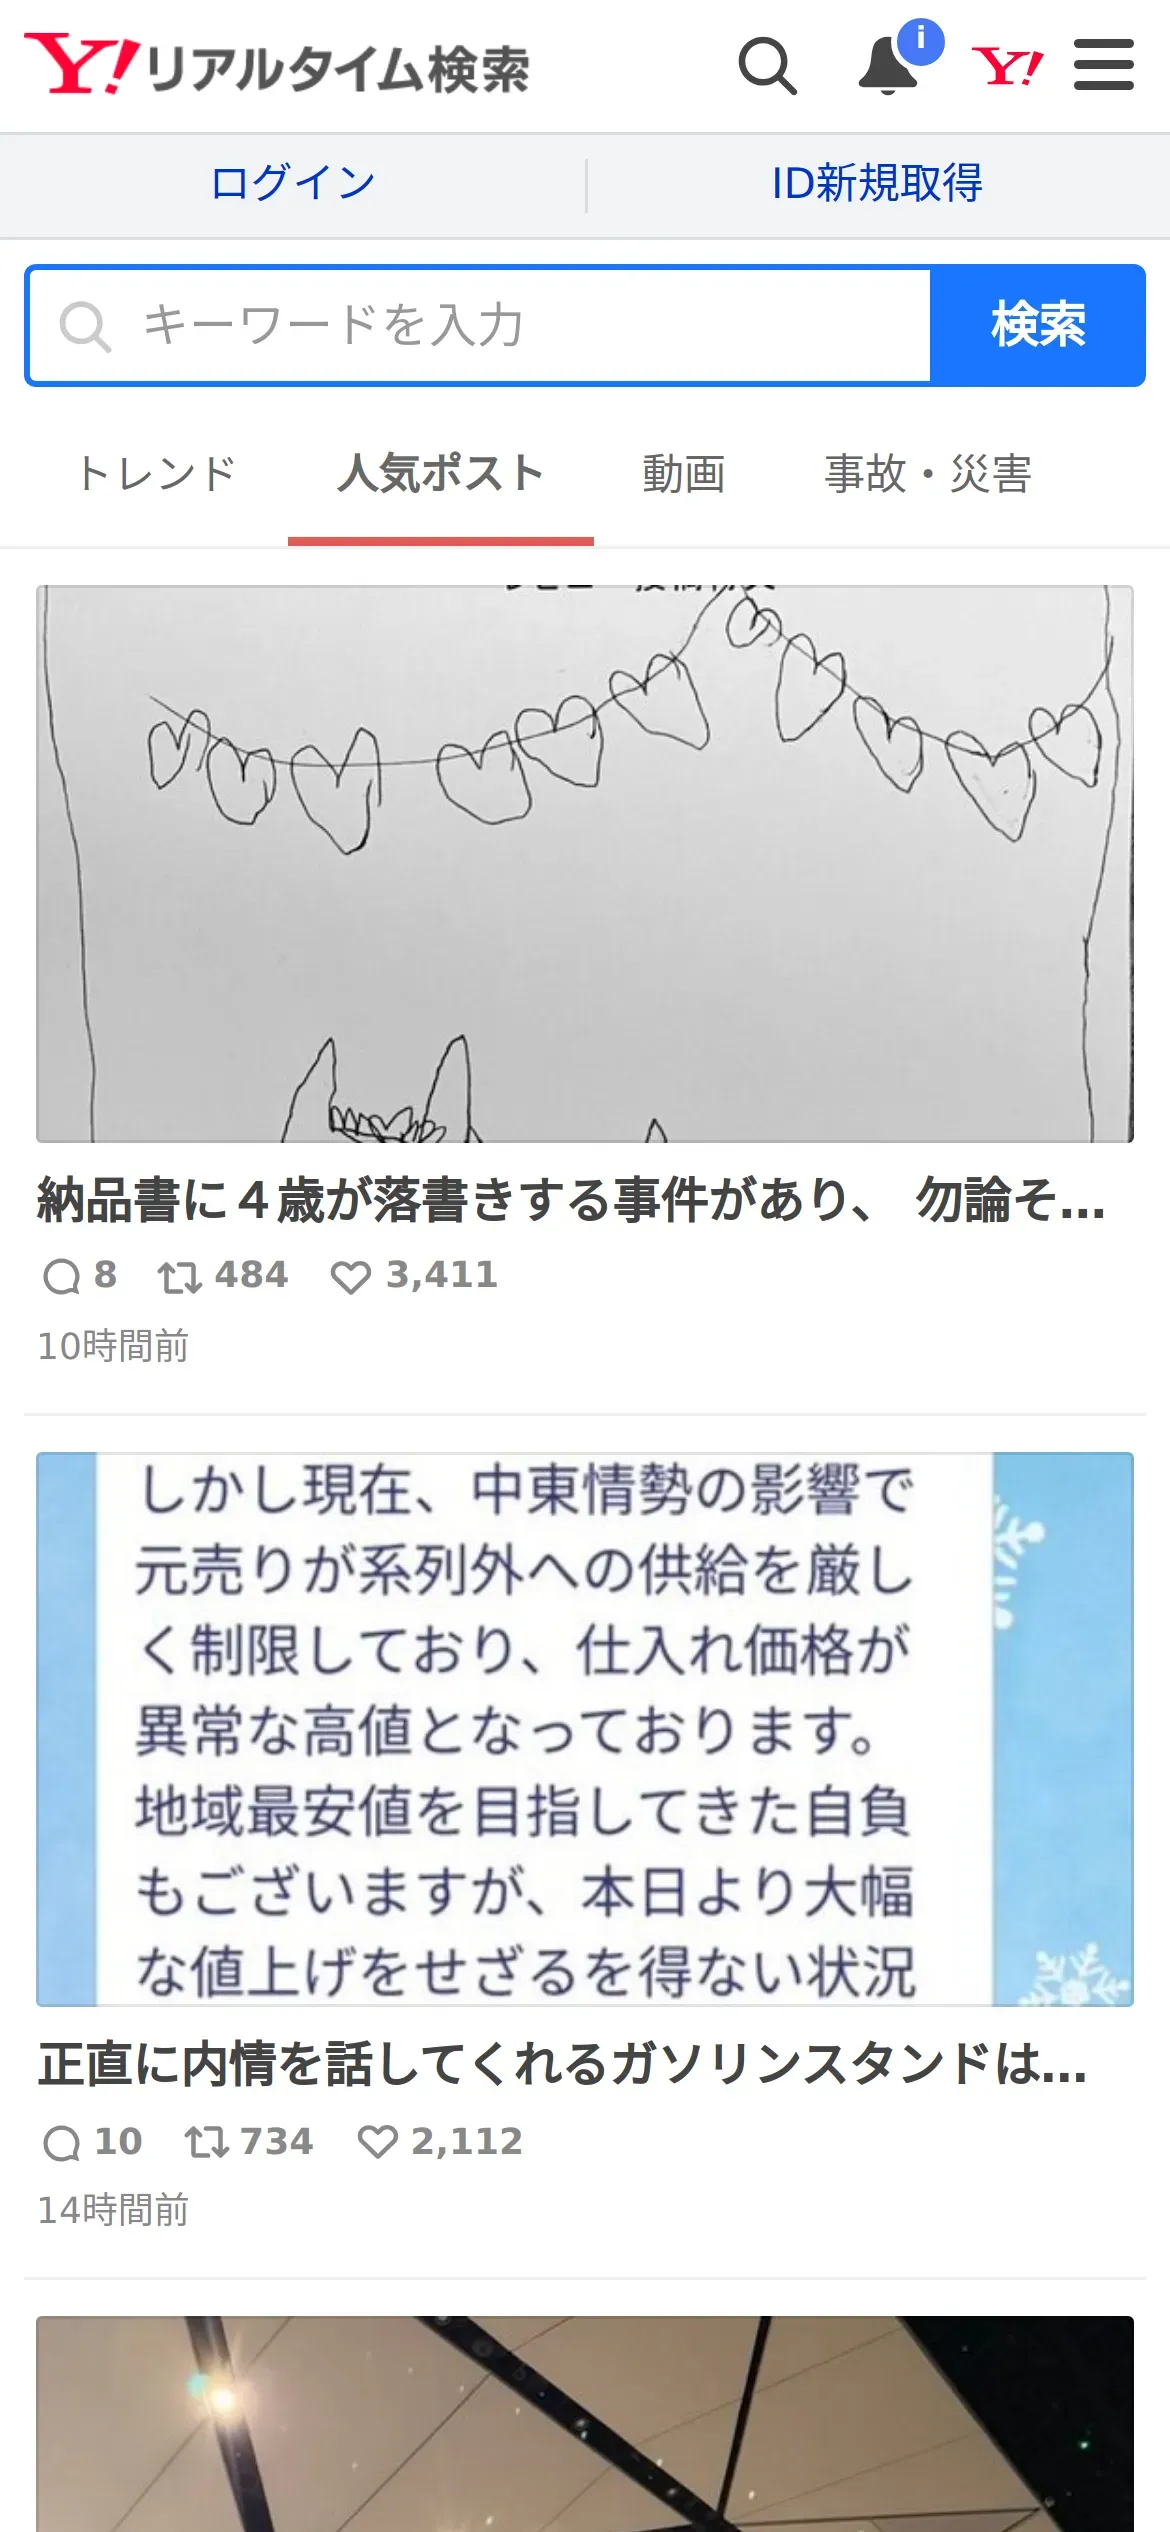 Y!リアルタイム検索
i
Y!
ログイン
ID新規取得
キーワードを入力
検索
トレンド
人気ポスト
動画
事故・災害
納品書に４歳が落書きする事件があり、 勿論そ...
8 484 3,411
10時間前
しかし現在、中東情勢の影響で
元売りが系列外への供給を厳し
く制限しており、仕入れ価格が
異常な高値となっております。
地域最安値を目指してきた自負
もございますが、本日より大幅
な値上げをせざるを得ない状況
正直に内情を話してくれるガソリンスタンドは...
10 734 2,112
14時間前